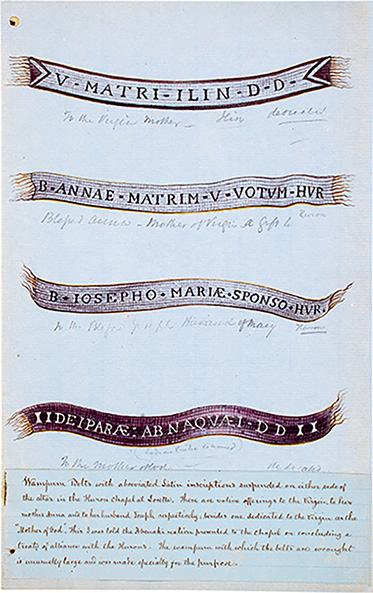 V - MATRI - ILIN - D - D -
To the Virgin Mother — Ilin dedicated
B - ANNAE - MATRI M - V - VOTVM - HVR
Blessed Anna - Mother of Virgin A Gift to Huron
B • IOSEPHO • MARIÆ • SPONSO • HVR •
To the Blessed Joseph Husband of Mary Huron
DEIPARÆ: ABNAQVÆI - D D
To the Mother of God — dedicated
Wampum Belts with abbreviated Latin inscriptions suspended on either side of
the altar in the Huron Chapel at Lorette. These are votive offerings to the Virgin, to her
mother Anna and to her husband Joseph respectively, besides one dedicated to the Virgin as the
"Mother of God". This I was told the Abenaki nation presented to the chapel on concluding a
treaty of alliance with the Hurons. The wampum with which the belts are wrought
is unusually large and was made specially for the purpose.